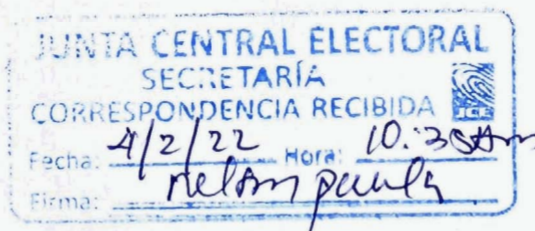 JUNTA CENTRAL ELECTORAL
SECRETARÍA
CORRESPONDENCIA RECIBIDA
JCE
Fecha: 4/2/22 Hora: 10:30am
Firma: